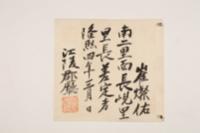 崔燦佑
南二里面長峴里
里長差定者
隆熙四年三月日
江陵郡廳